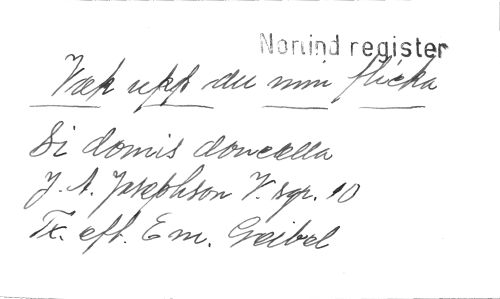 Norlind register
Væk upp du min flicka
Si domis doncella
J. A. Josephson V. sgr. 10
Tx. eft. Em. Geibel